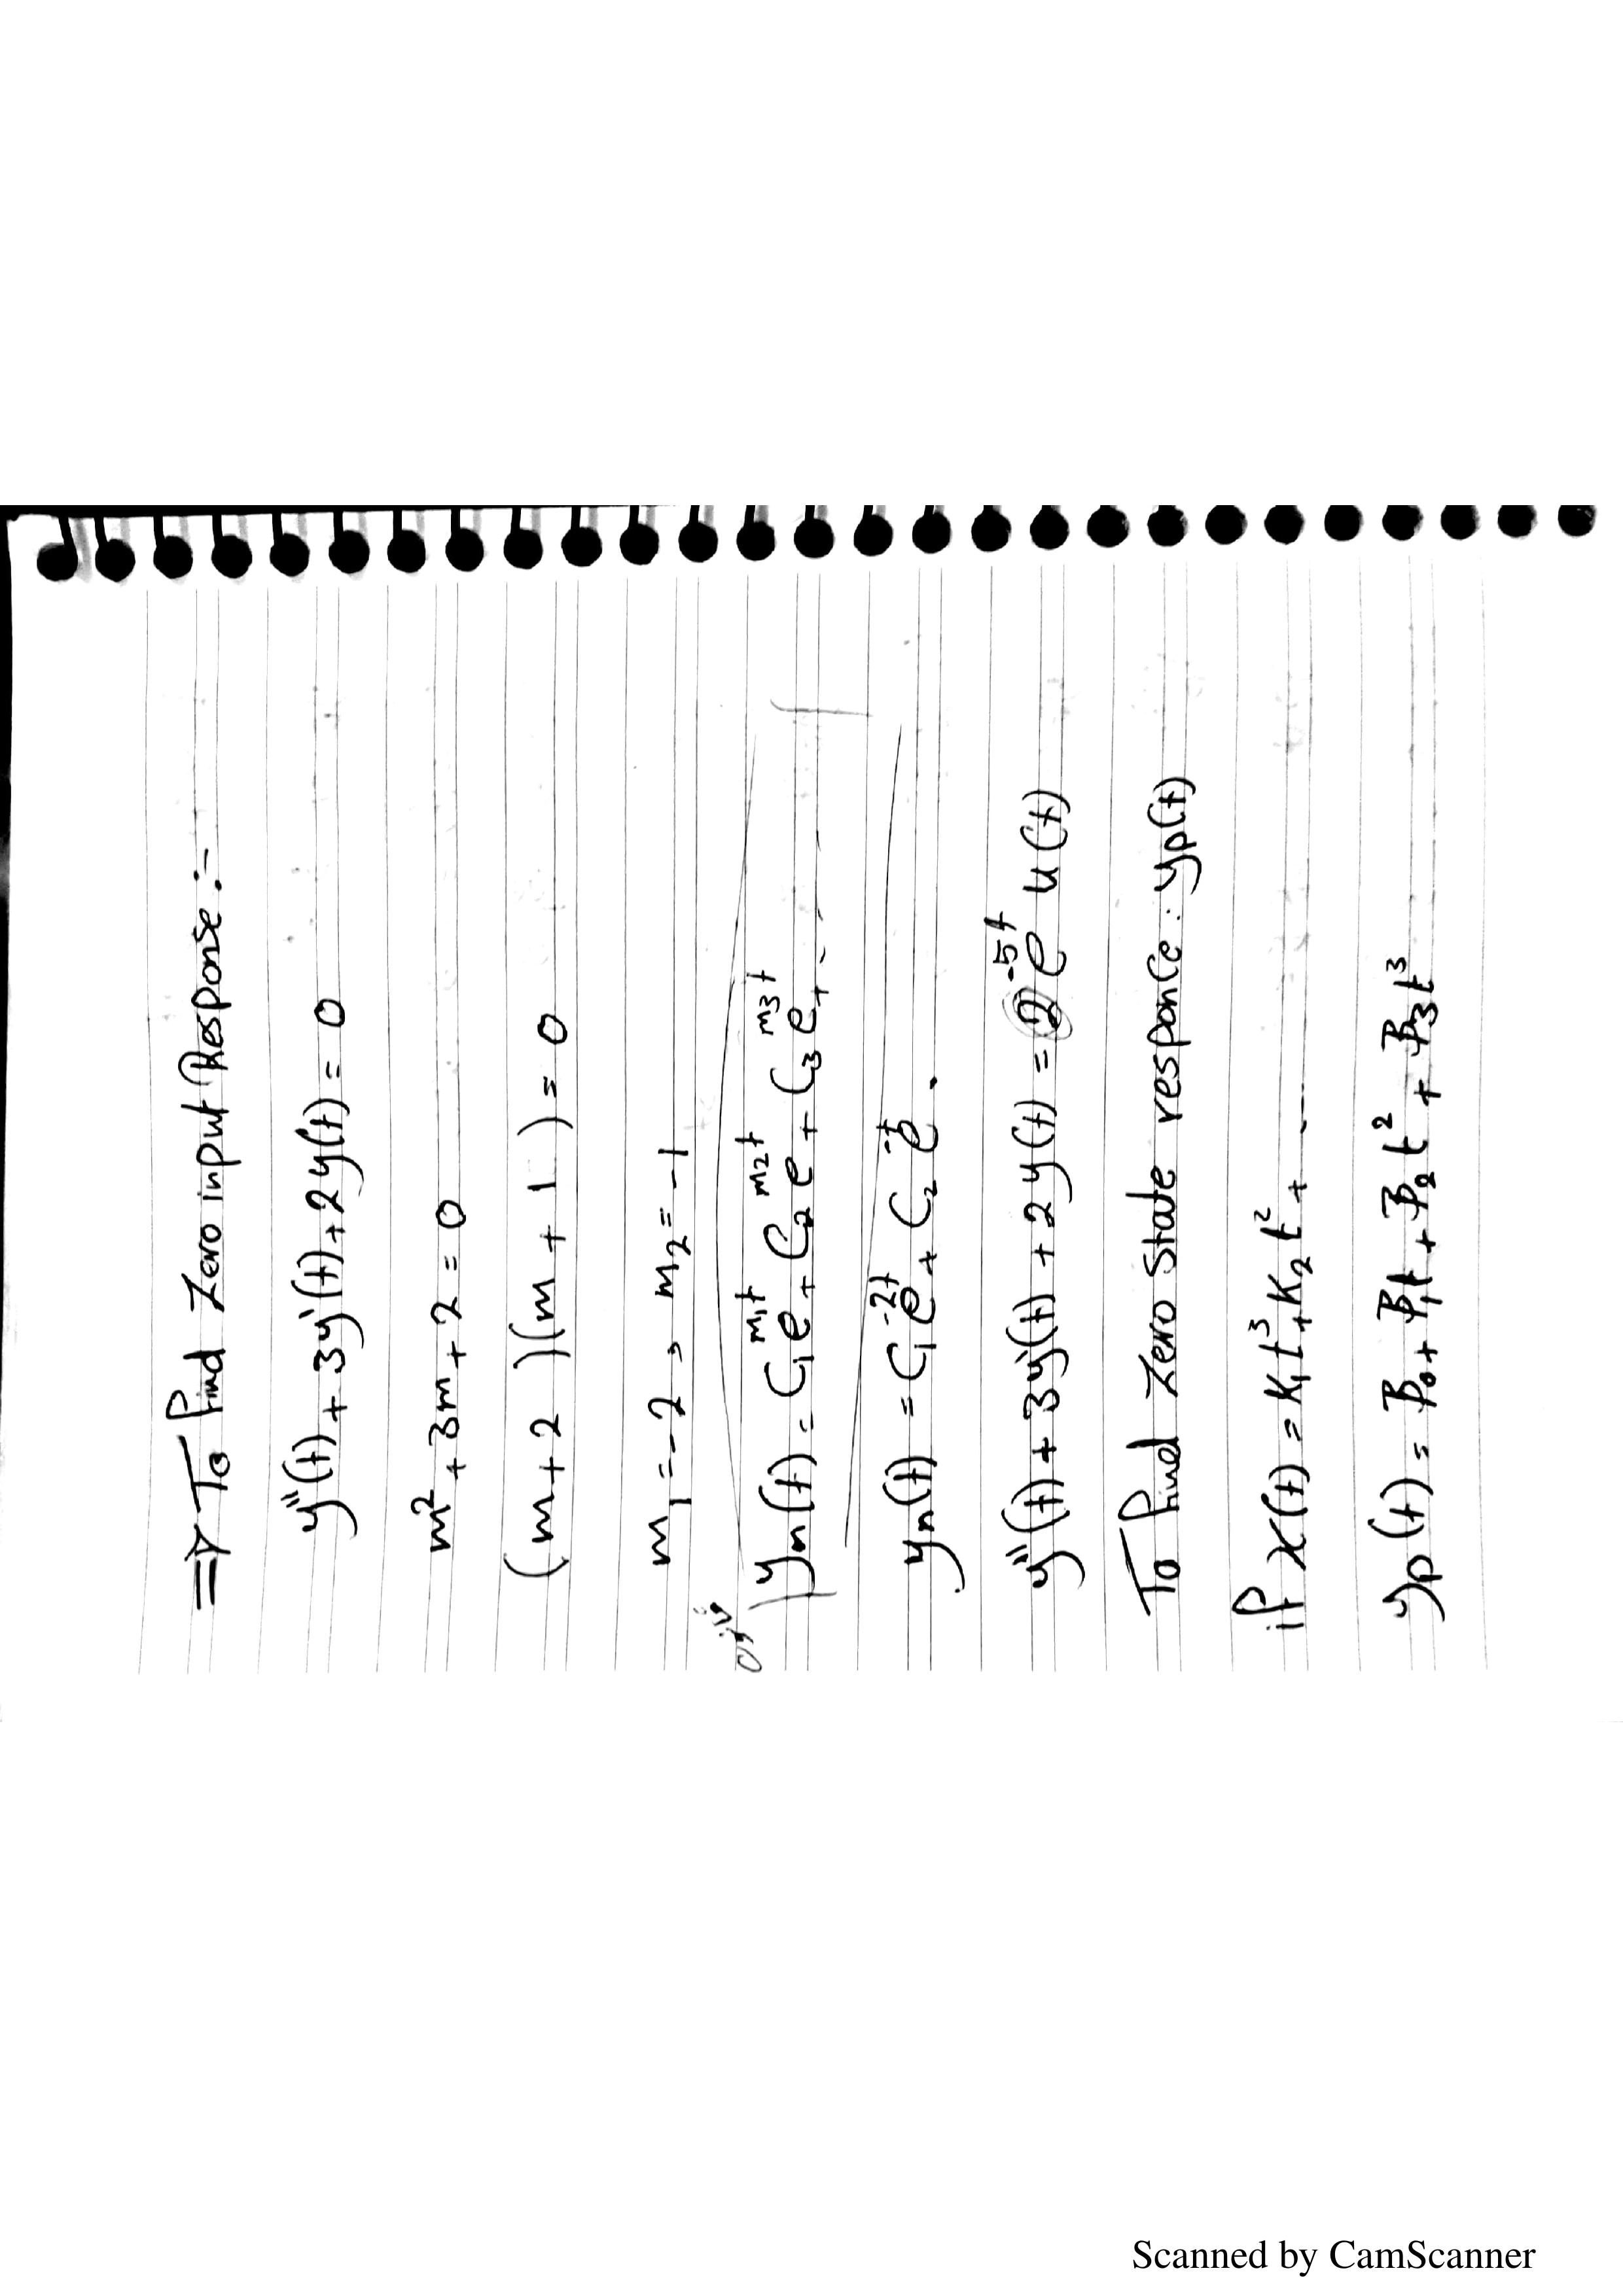 ⇒ To find Zero input Response :-
y''(t) + 3y'(t) + 2y(t) = 0
m² + 3m + 2 = 0
(m + 2 )(m + 1 ) = 0
m₁ = -2 , m₂ = -1
yₙ(t) = C₁e^{m₁t} + C₂e^{m₂t} + C₃e^{m₃t} + - -
yₙ(t) = C₁e^{-2t} + C₂e^{-t} .
y''(t) + 3y'(t) + 2y(t) = 2e^{-5t} u(t)
To find Zero State responce : yp(t)
if x(t) = K₁t³ + K₂t² + ---
yp(t) = B₀ + B₁t + B₂t² + B₃t³
Scanned by CamScanner